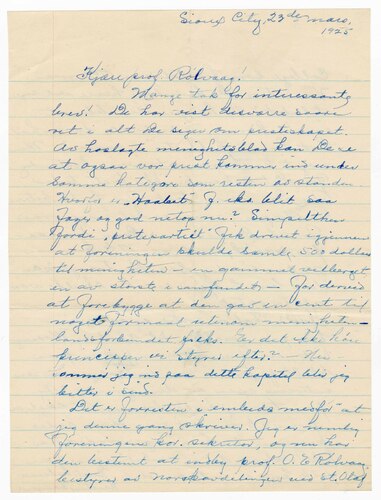 Sioux City, 23de mars,
1925
Kjære prof. Rolvaag!
Mange tak for interessante
brev! De har vist desværre saare
ret i alt De siger om presteskapet.
Av hoslagte menighetsblad kan De se
at ogsaa vor prest kommer ind under
samme kategori som resten av standen.
Hvorfor er "Haabet" f. eks. blit saa
fager og god netop nu? Simpelthen
fordi "prestepartiet" fik drevet igjennem
at foreningen skulde samle 500 dollars
til menigheten – en gammel velberget
en av størst i samfundet – for derved
at forebygge at den gav en cent til
noget formaal utenom menigheten –
landsforbundet f. eks. Er det ikke fine
principper vi styres efter? – Nu
kommer jeg ind paa dette kapitel blir jeg
bitter i sind.
Det er forresten i embeds medfør at
jeg denne gang skriver. Jeg er nemlig
foreningens kor. sekretær, og nu har
den bestemt at indby prof. O. E. Rolvaag,
bestyrer av norskavdelingen ved St. Olaf